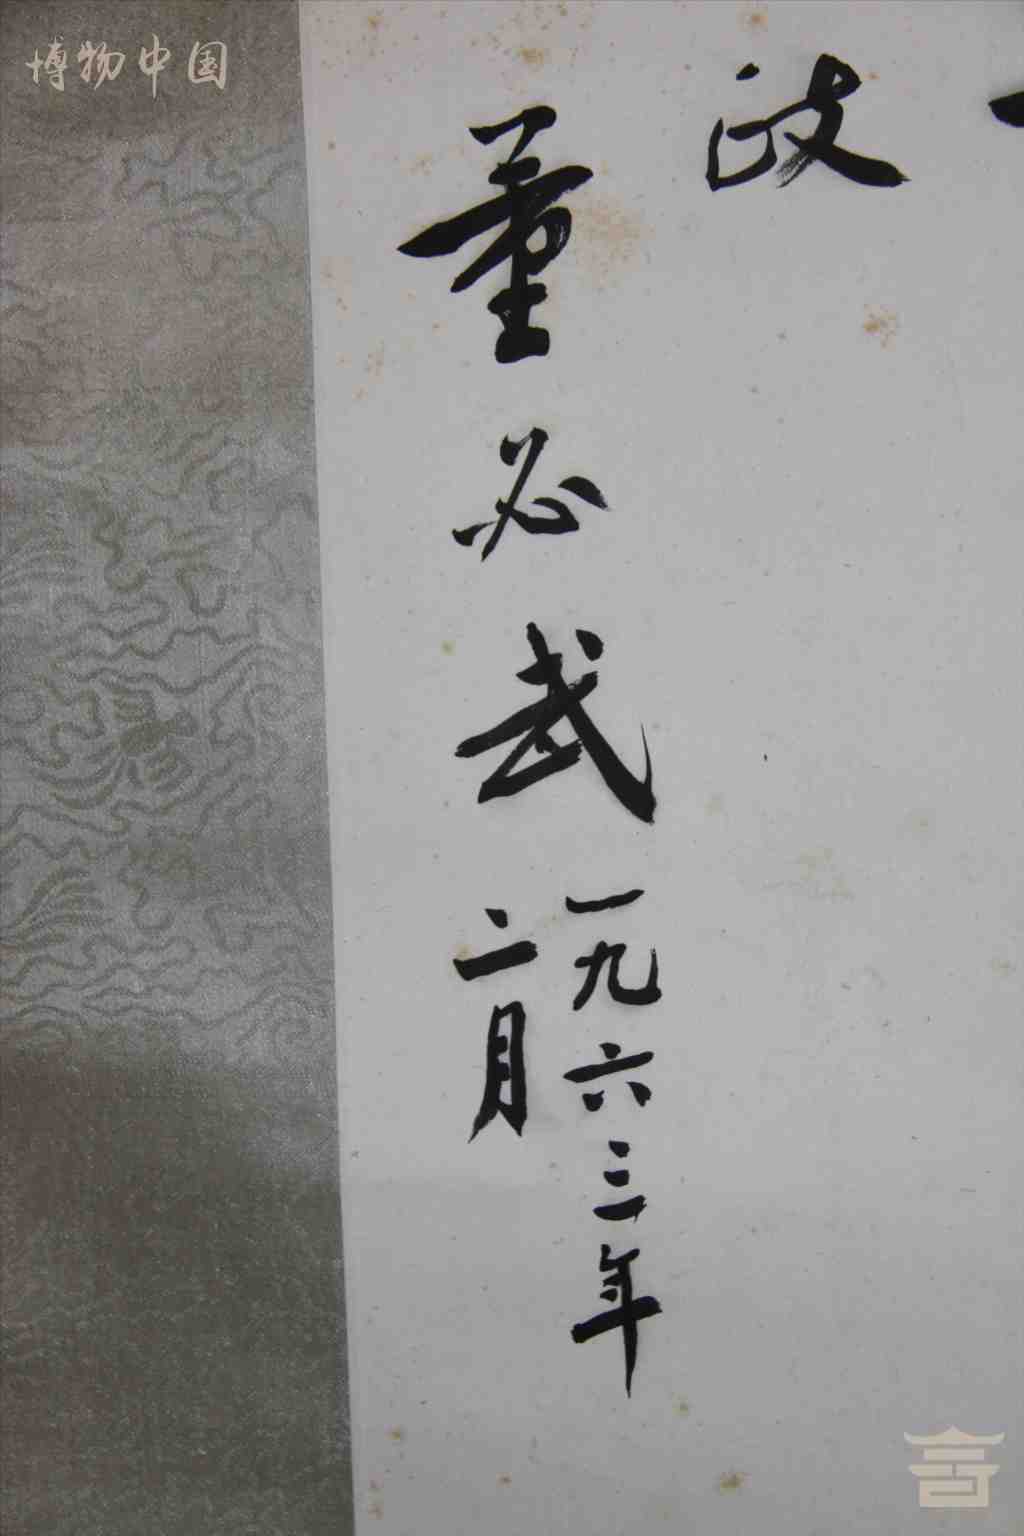 博物中国
政
董必武
一九六三年
二月